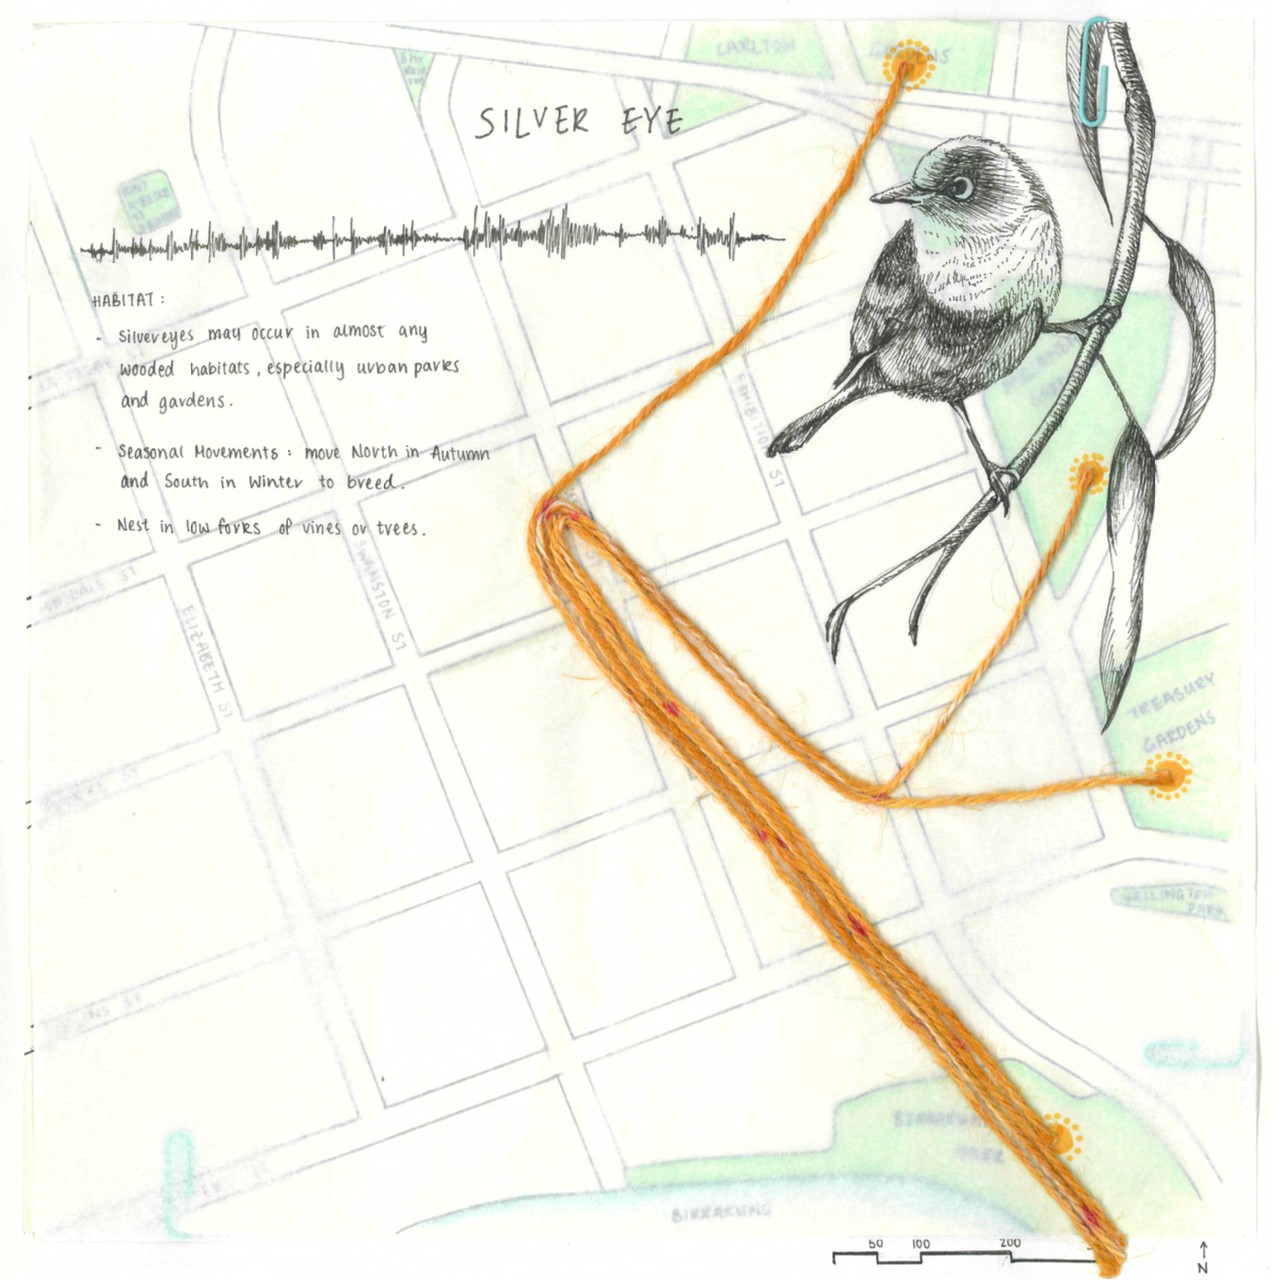 CARLTON GARDENS
SILVER EYE
HABITAT:
- Silvereyes may occur in almost any
wooded habitats, especially urban parks
and gardens.
- Seasonal Movements: move North in Autumn
and South in Winter to breed.
- Nest in low forks of vines or trees.
EXHIBITION ST
SWANSTON ST
ELIZABETH ST
TREASURY
GARDENS
WELLINGTON
PARK
PARK
BIRRARUNG
50 100 200
N